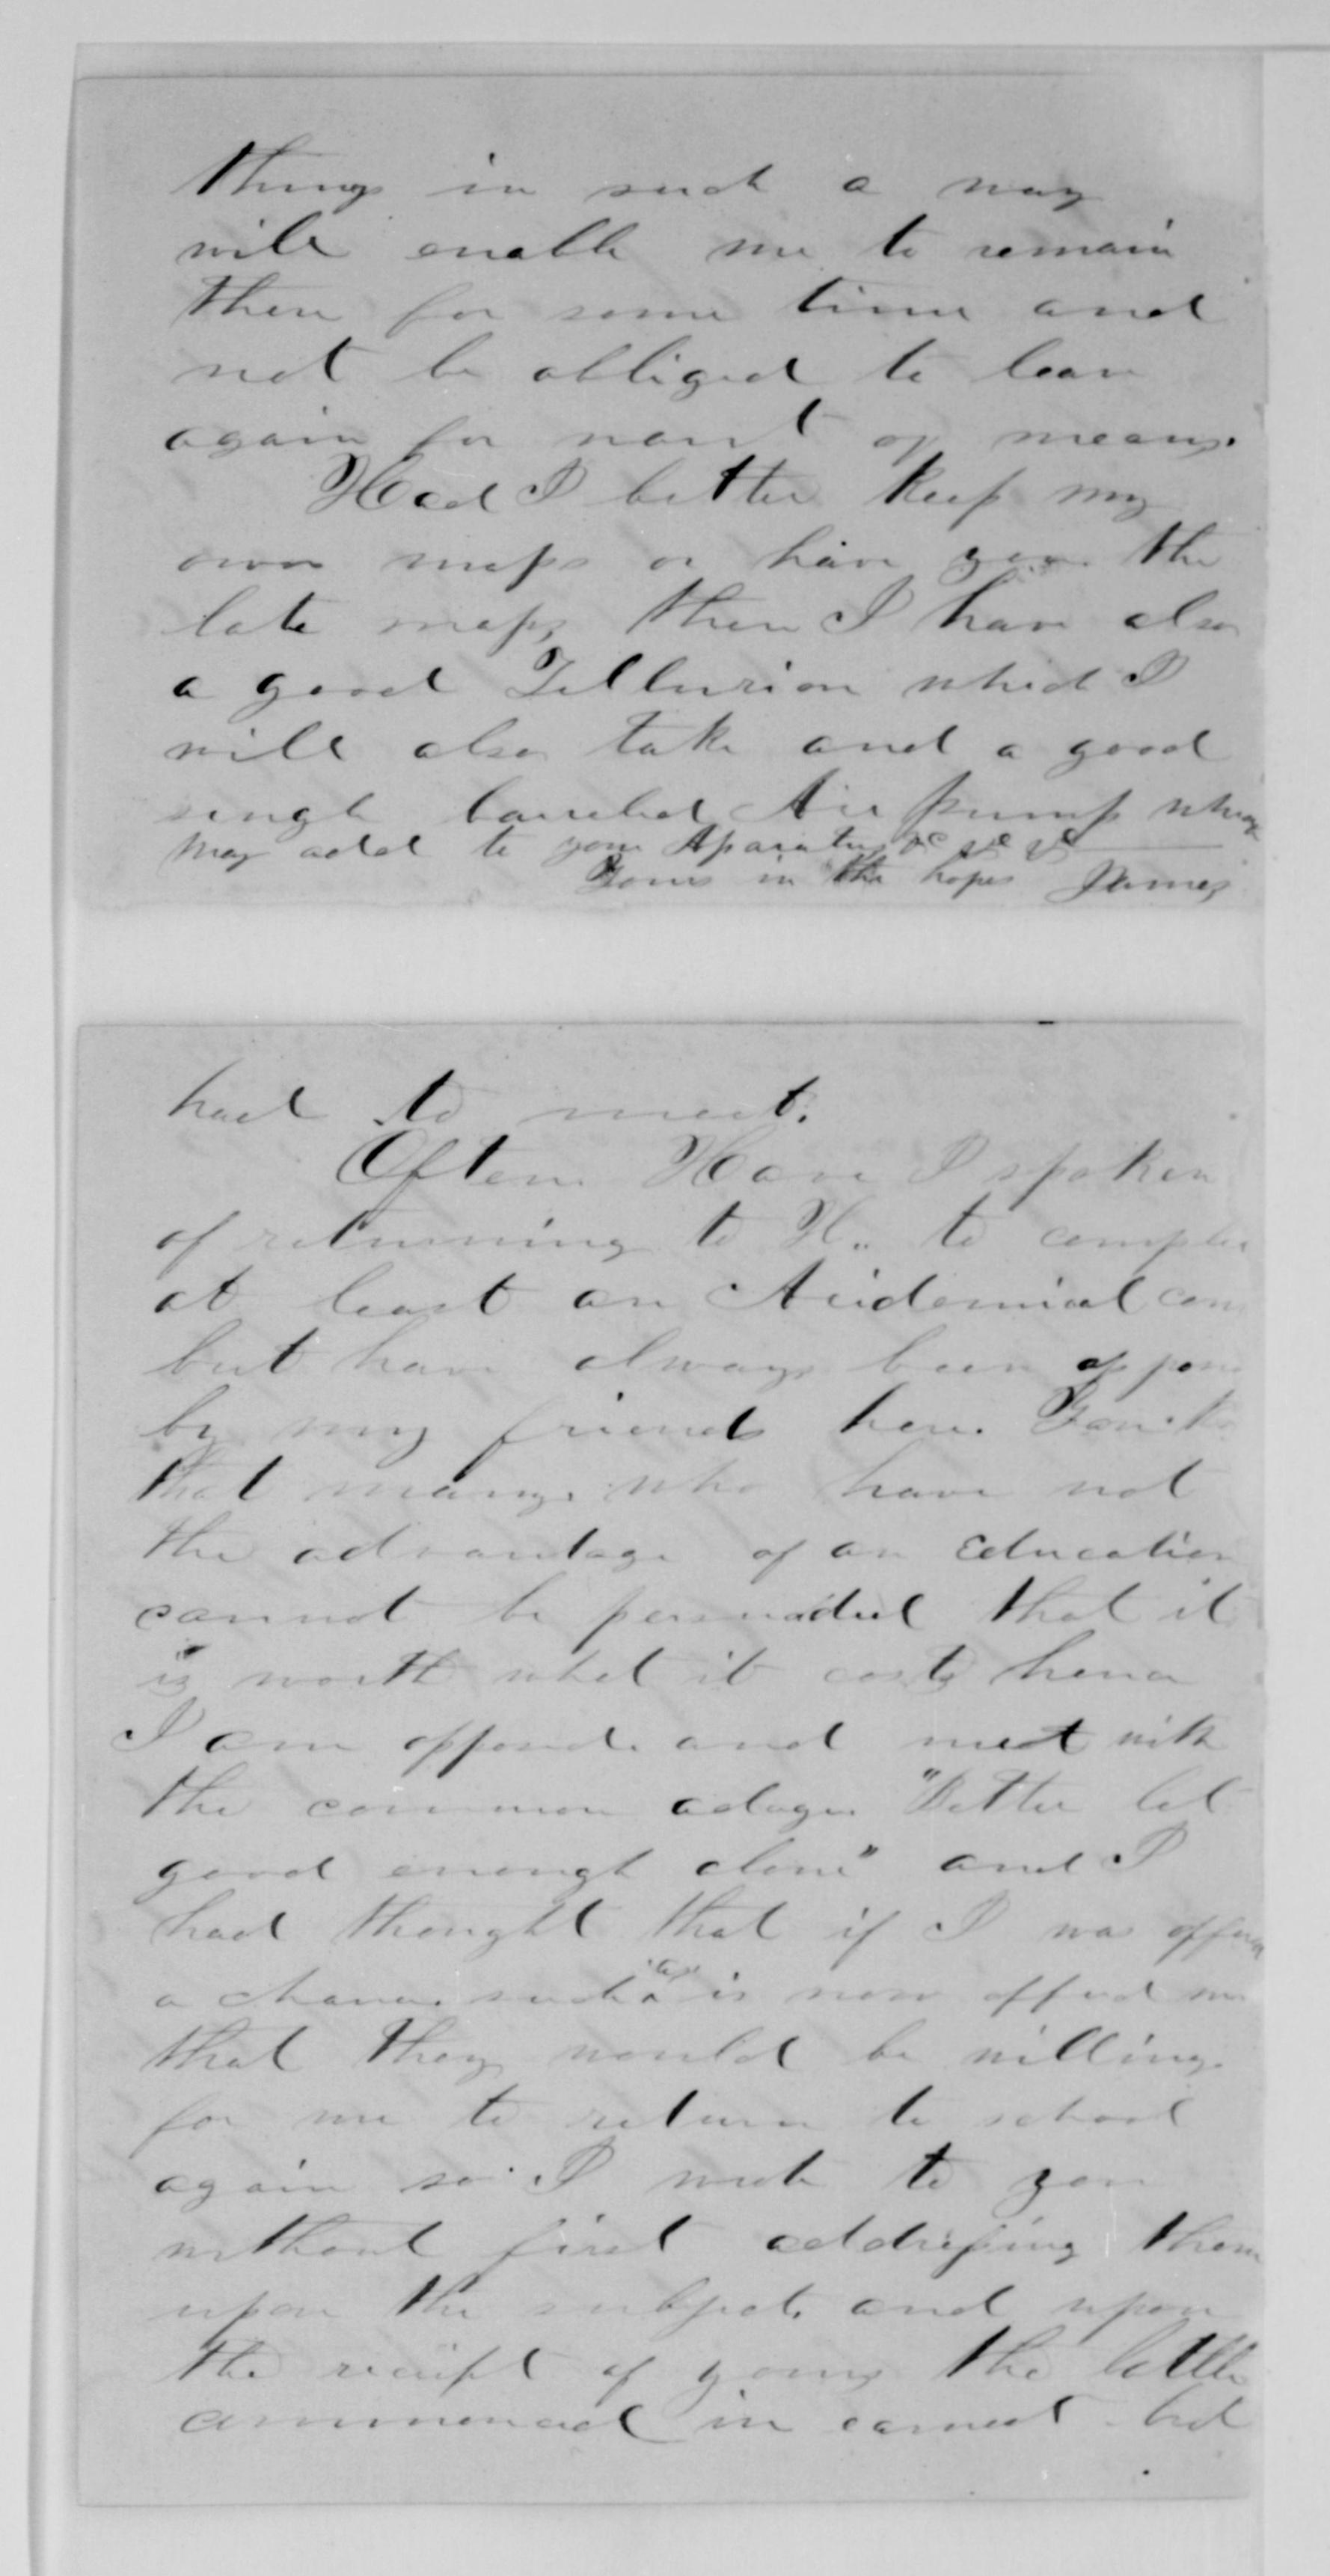 things in such a way
will enable me to remain
there for some time and
not be obliged to leave
again for want of means.
Had I better keep my
own maps or have you the
late maps, then I have also
a good Tellurion which I
will also take and a good
single barreled Air Pump which
may add to your Aparatus &c &c &c
Yours in the hopes James
had to meet.
Often Have I spoken
of returning to H.. to
at least an
but have always been
by my friends here.
that many. who have not
the advantage of an Education
cannot be persuaded that it
is worth what it costs hence
I am opposed. and meet with
the common adage. "Better let
good enough alone" and I
had thought that if I was
a chance such as is now offerd me
that they would be willing.
for me to return to school
again so I wrote to you
without first addressing them
upon the subject. and upon
the receipt of yours the battle
commenced in earnest but